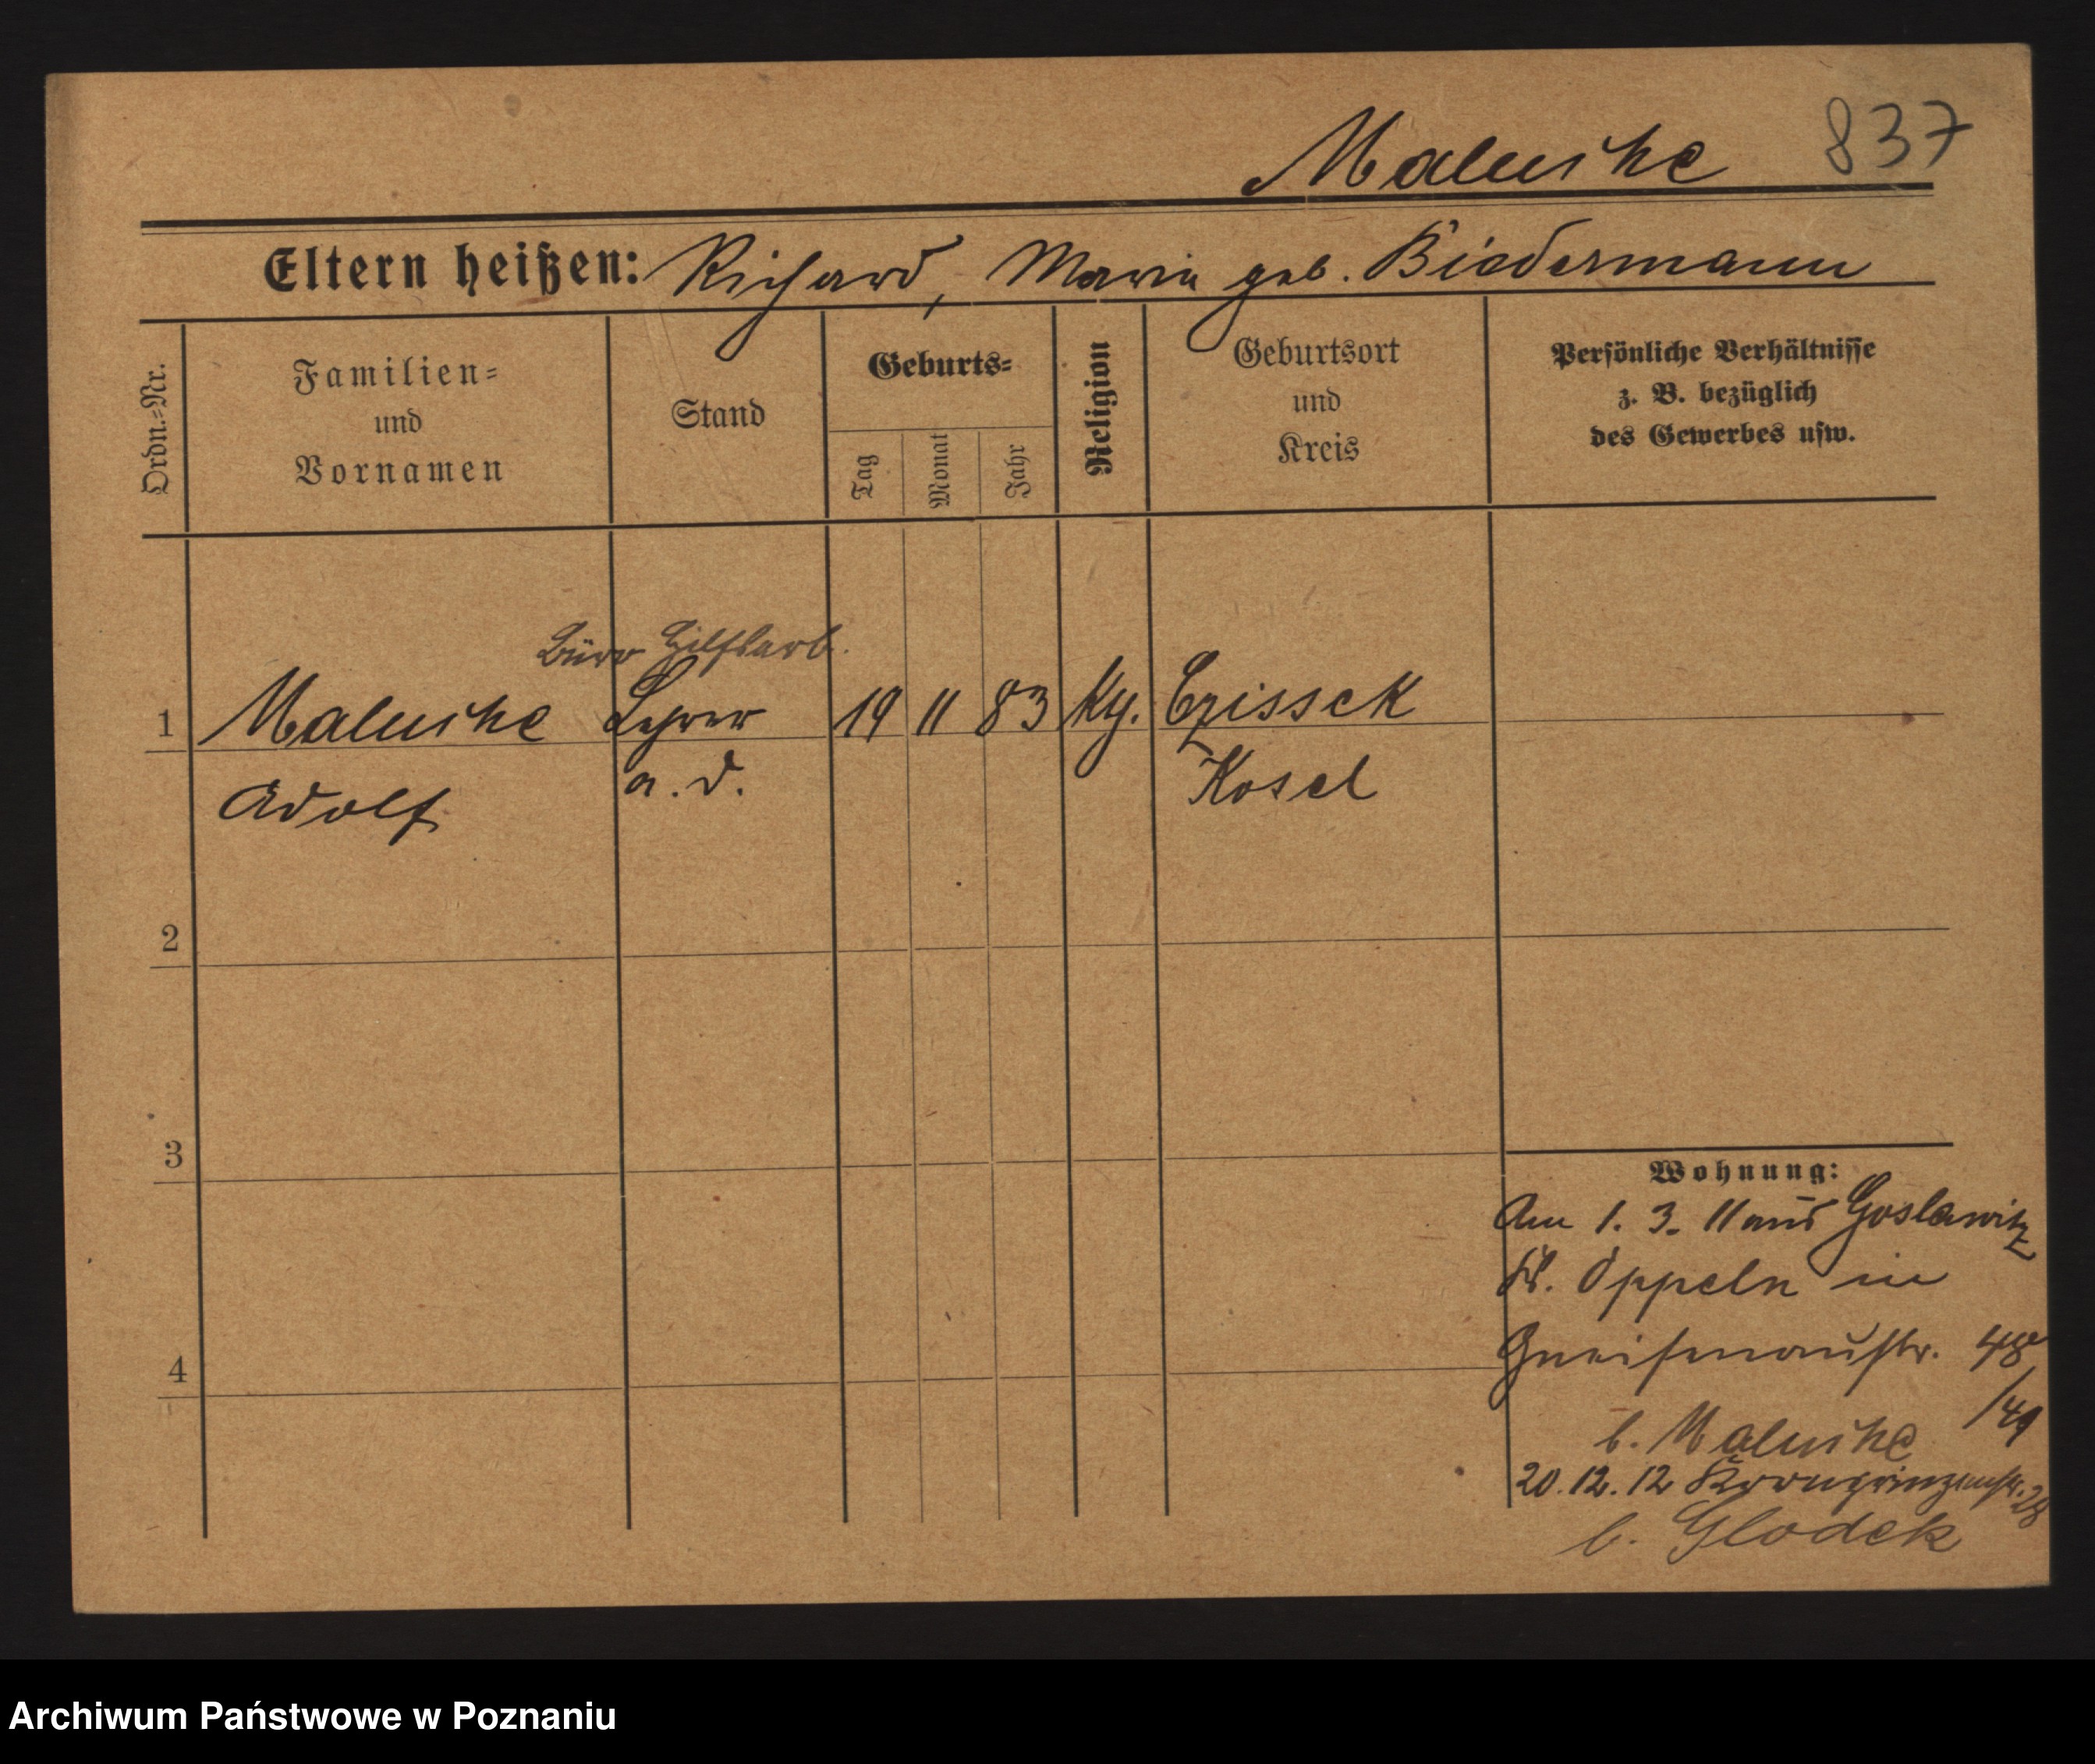 Maluske 837
Eltern heißen: Richard, Maria geb. Biedermann
Ordn.=Nr.
Familien=
und
Vornamen
Stand
Geburts=
Tag
Monat
Jahr
Religion
Geburtsort
und
Kreis
Persönliche Verhältnisse
z. B. bezüglich
des Gewerbes usw.
Büro Hilfsarb.
1 Maluske Lehrer 19 11 83 Czissek
Adolf a. D. Kosel
2
3
4
Wohnung:
Am 1. 3. 11 aus Goslawitz
Kr. Oppeln in
Gneisenaustr. 48
b. Maluske
20.12.12 Kronprinzenstr. 28
b. Glodek
Archiwum Państwowe w Poznaniu